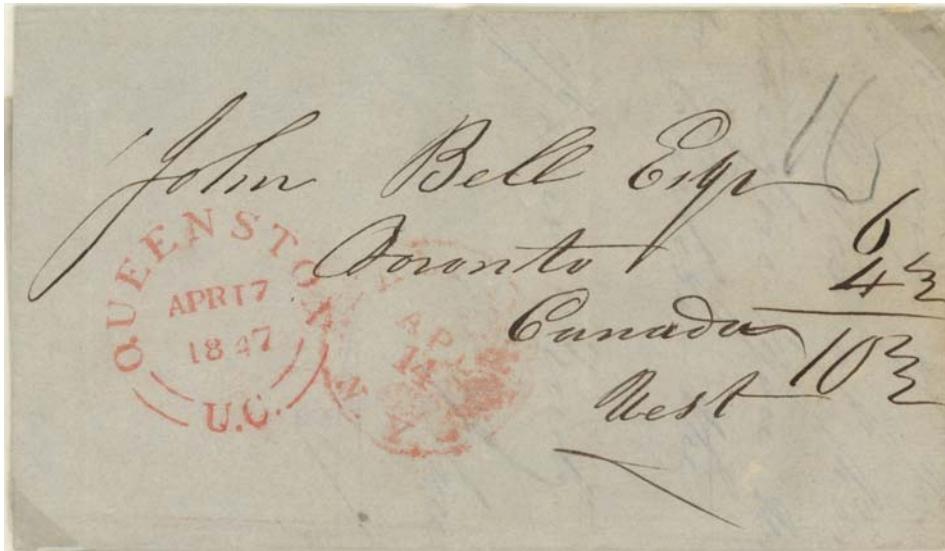 John Bell Esqr
Toronto
Canada
West
10
6
4½
10½
QUEENSTON
APR 17
1847
U.C.
APR
14
N Y